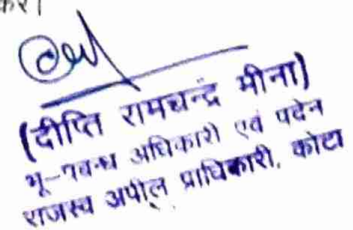 करें।
(दीप्ति रामचन्द्र मीना)
भू-प्रबन्ध अधिकारी एवं पदेन
राजस्व अपील प्राधिकारी, कोटा